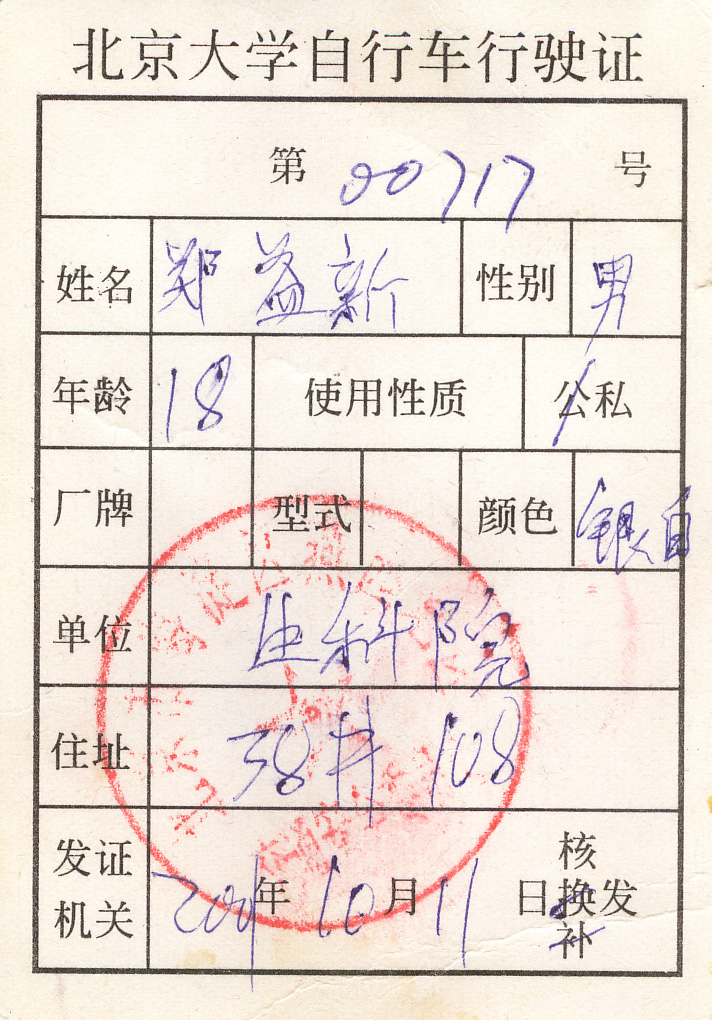 北京大学自行车行驶证
第 00717 号
姓名 郑益新 性别 男
年龄 18 使用性质 公私
厂牌 型式 颜色 银白
单位 生科院
住址 38# 108
发证机关 2001年10月11日 核换补发